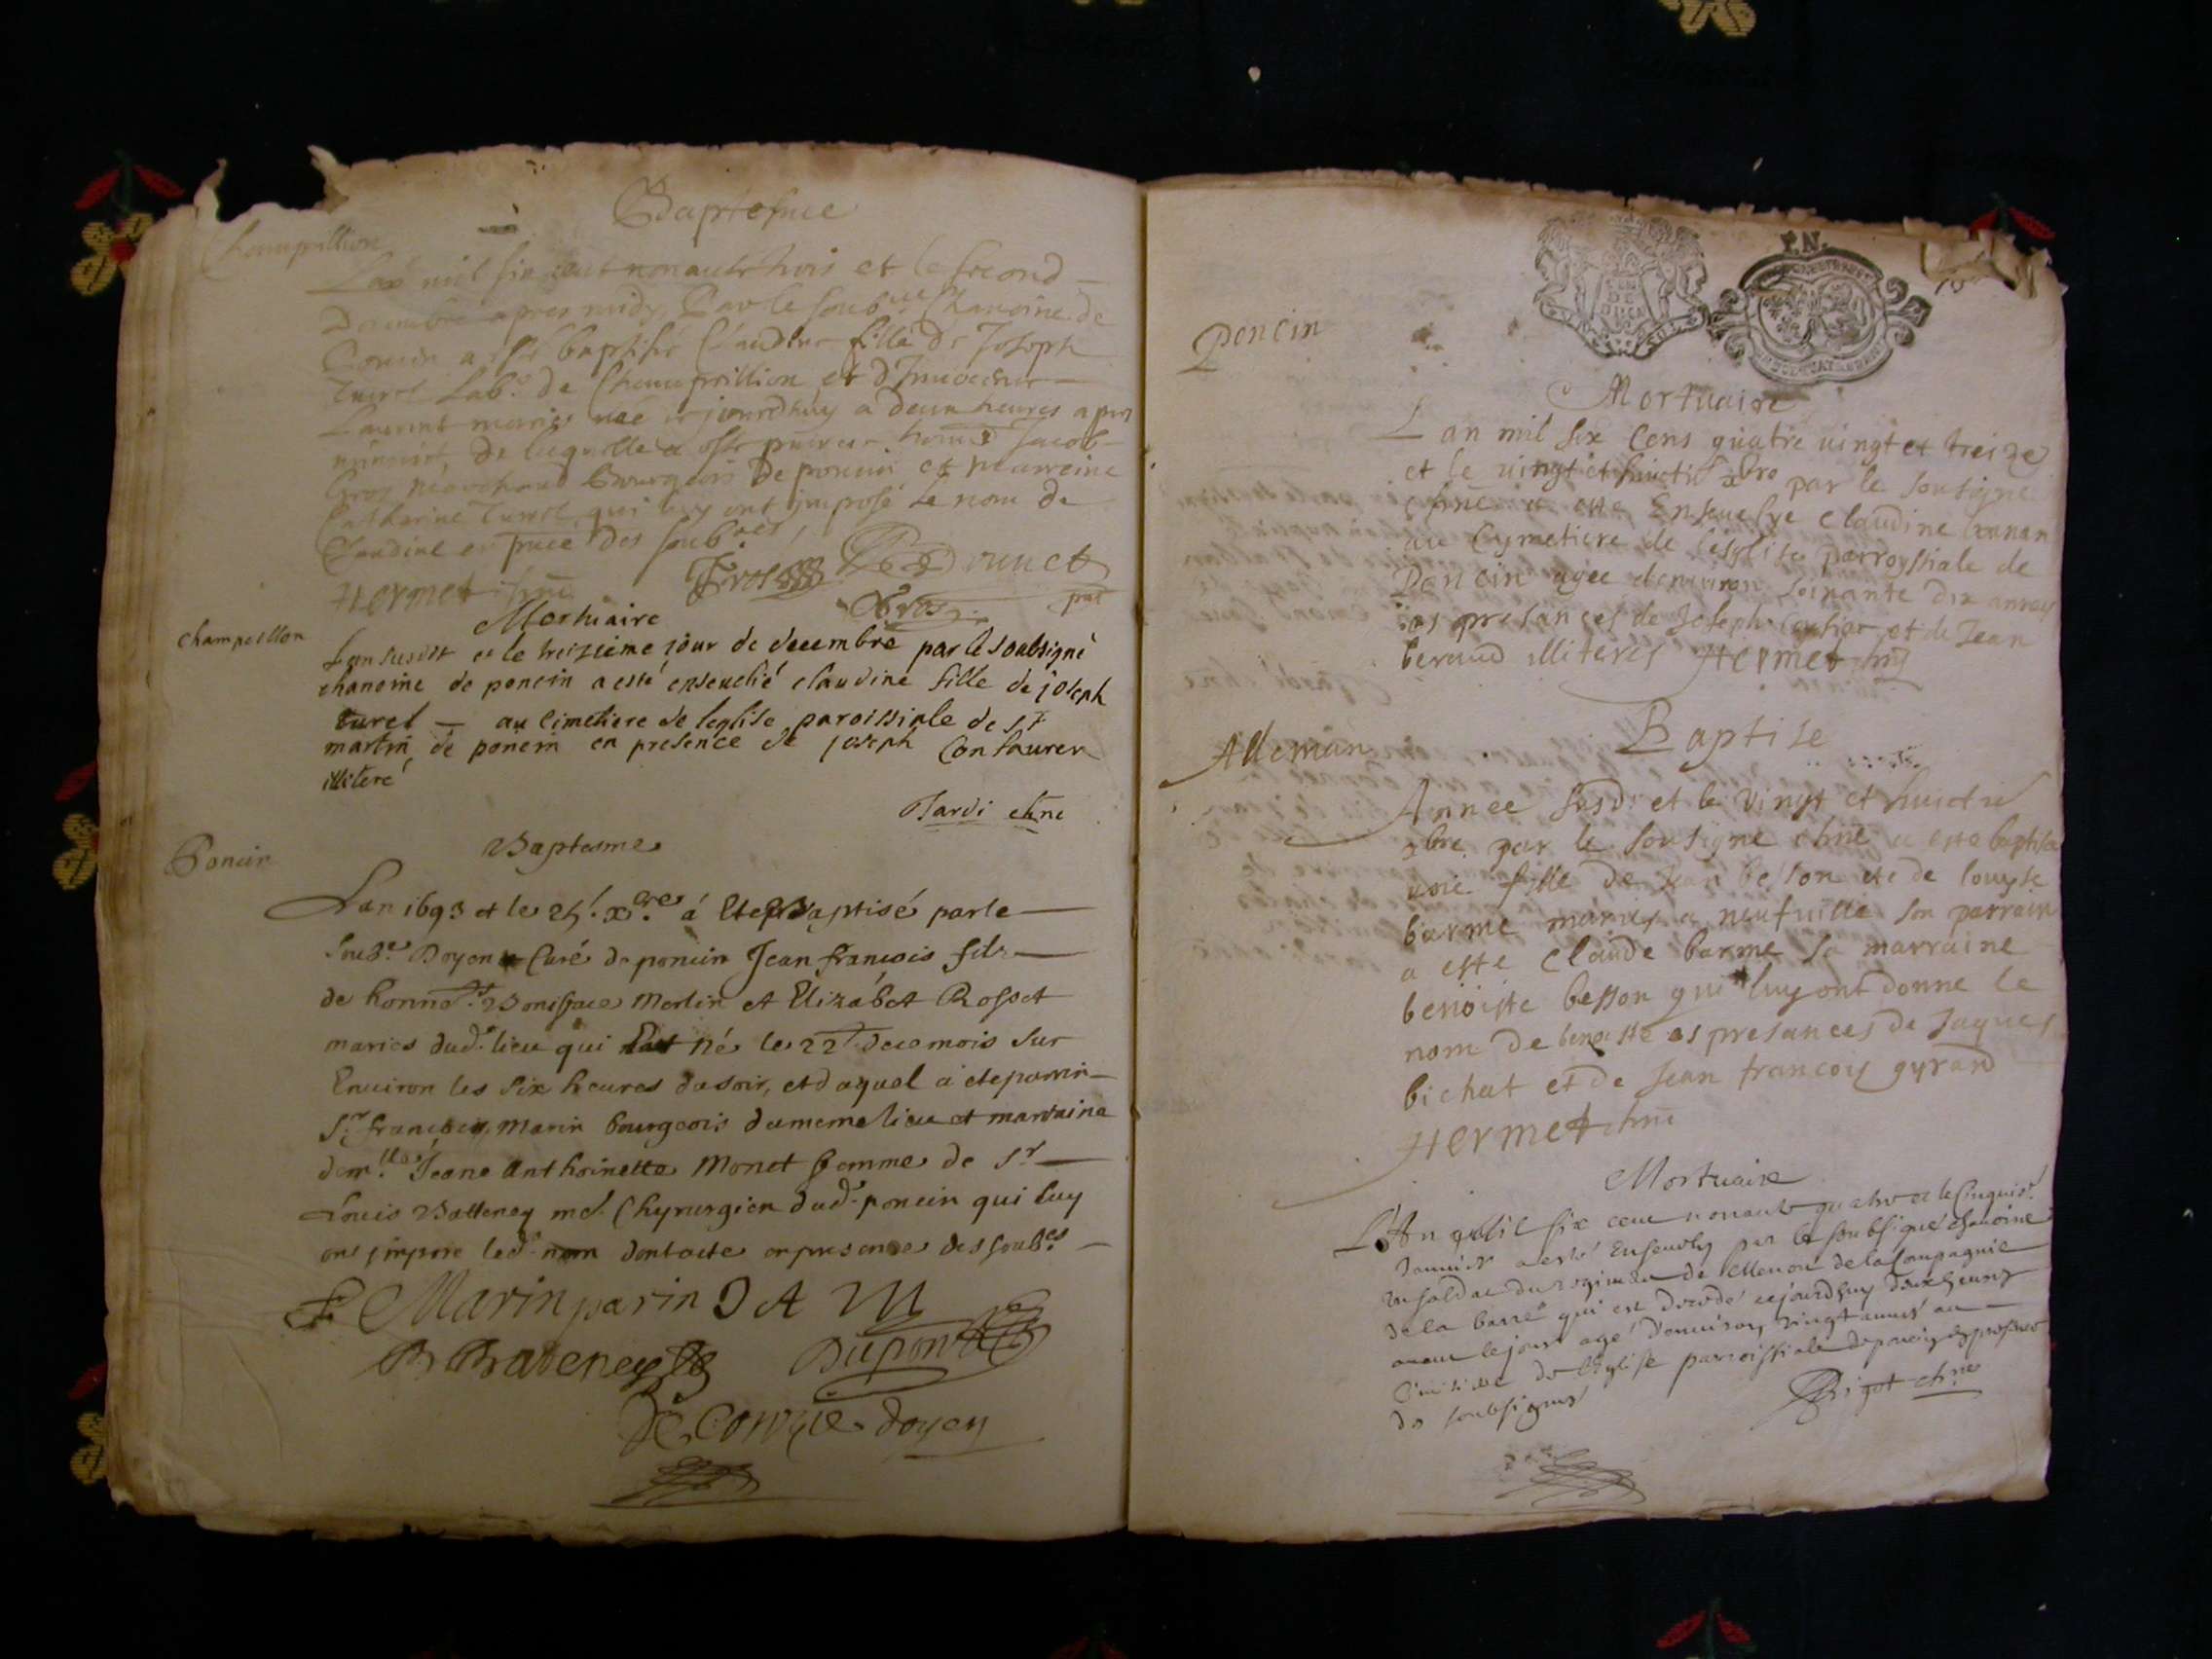 Baptesme
Champillion
Lan mil six cent nonante trois et le second
Decembre apres midy Par le soubné Chanoine de
Poncin a esté baptisée Claudine fille de Joseph
Turel Lab. de Champillion et d'Innocente
Laurent mariés née ce jourdhuy a deux heures apres
minuict, de laquelle a esté parrain Jacob
Gros marchand bourgeois de poncin et marreine
Catherine Turel qui luy ont imposé le nom de
Claudine en pnce des soubnes
Hermet chne
Gros
Brunet
Gros
pnt
Mortuaire
Champeillon
Lan susdit et le treizieme jour de decembre par le soubsigné
chanoine de poncin a esté enseuelié claudine fille de joseph
turel — au cimetiere de leglise paroissiale de st
martin de poncin en presence de joseph Con lauren
illiteré
Tardi chne
Baptesme
Poncin
Lan 1693 et le 25. xbre a ete Baptisé par le
soubé. Doyen et Curé de poncin Jean francois fils
de honnet. Boniface Merlin et Elizabet Rosset
mariés dud. lieu qui est né le 22 de ce mois sur
Environ les six heures du soir, et duquel a ete parrin
Sr. francois Marin bourgeois du meme lieu et marraine
dem.lle Jeane Anthoinette Monet femme de Sr
Louis Batteney me. Chyrurgien dud. poncin qui luy
ont imposé led. nom dont acte en presence des soubés
F Marin parin J A M
B Bateney
Dupont
De Corgie doyen
P.N.
Poncin
Mortuaire
L an mil six Cens quatre uingt et treize
et le uingt et huictie xbre par le soutigné
chne a esté Enseuelye claudine
au Cymetiere de lesglise parroyssiale de
Poncin agee denuiron soixante dix annees
es presances de Joseph et de Jean
beraud illiteres Hermet chne
Baptise
Alleman
Annee susd. et le vingt et huictie
xbre par le soutigne chne a este baptisé
une fille de Jean besson et de louyse
barme mariés a neufuille son parrain
a este Claude barme sa marraine
benoiste besson qui luy ont donne le
nom de benoiste es presances de Jaques
bichat et de Jean francoys gyrand
Hermet chne
Mortuaire
L'An mil six cent nonante quatre et le Cinquie.
Januier a esté Enseuely par le soubsigné chanoine
un soldat du regiment de de la Compagnie
de la barre qui est decedé cejourdhuy deux heures
auant le jour agé d'enuiron vingt annees au
Cimetiere de l'Eglise parroissiale de poncin es presences
des soubsignes
Bigot chne